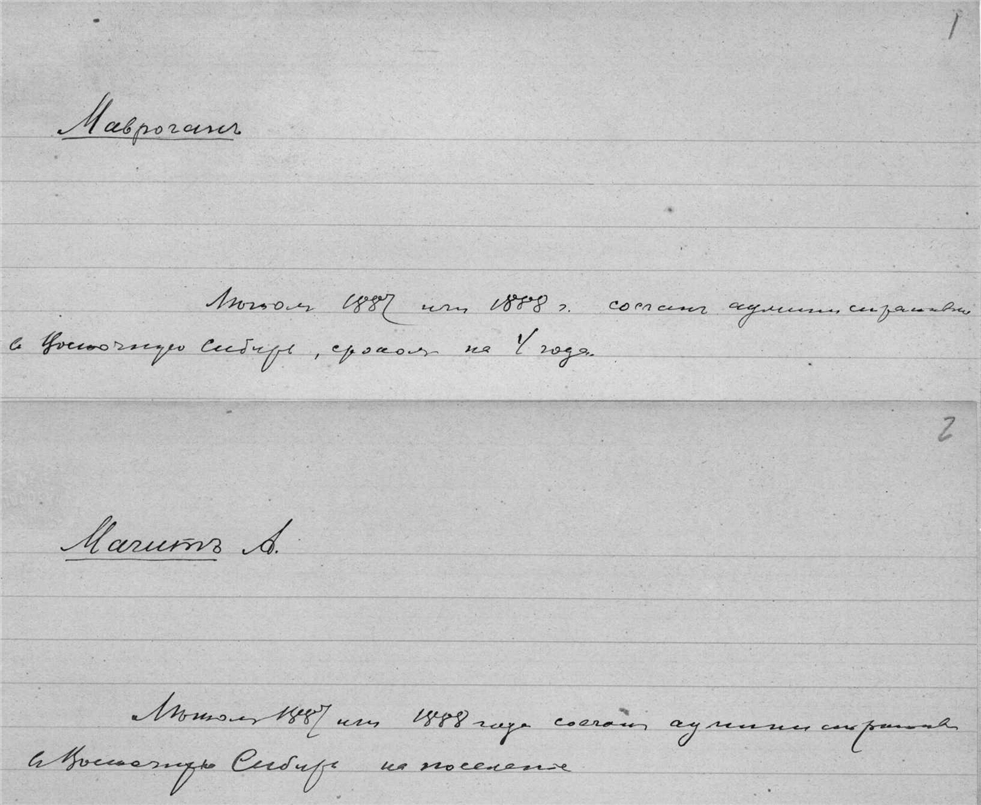 1
Маврогань
Лѣтомъ 1887 или 1888 г. сосланъ административно
въ Восточную Сибирь, срокомъ на 4 года.
2
Магитъ А.
Лѣтомъ 1887 или 1888 года сосланъ административно
въ Восточную Сибирь на поселеніе